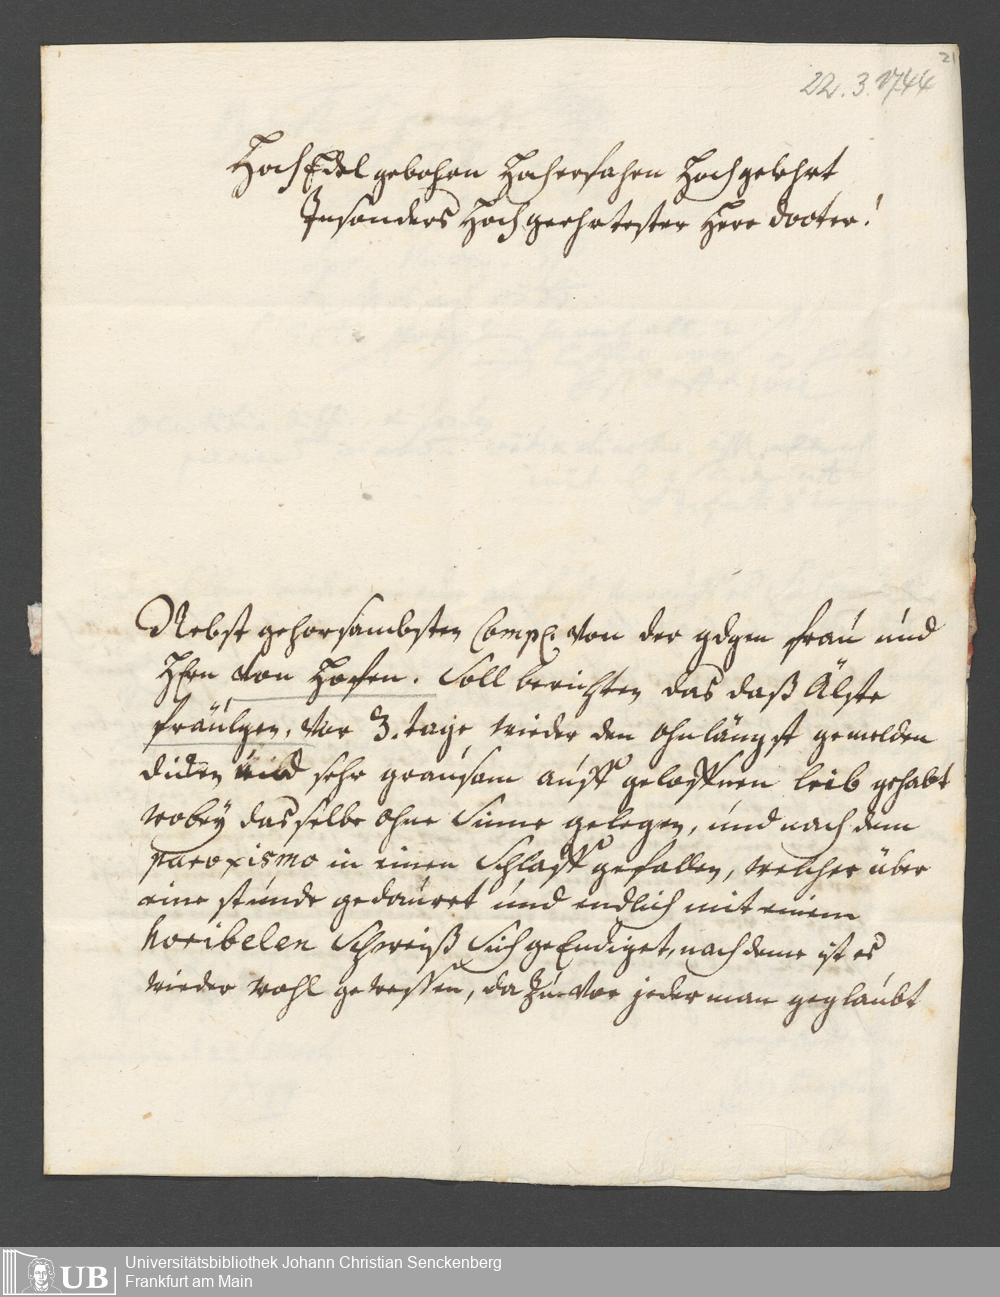 21
22.3.1744
HochEdel gebohrn Hocherfahrn Hochgelehrt
Insonders Hochgeehrtester Herr docter!
Nebst gehorsambsten Compl. von der gdgen frau und
HErn von Hopfen. Soll berichten das daß Älste
fräülgen, vor 3. tage wieder den ohnlängst gemelden
dicken und sehr grausam auff geloffnen leib gehabt
wobey dasselbe ohne Sinne gelegen, und nach dem
paroxismo in einen Schlaff gefallen, welcher über
eine stunde gedauret und endlich mit einem
horibelen Schweiß Sich geEndiget, nach deme ist es
wieder wohl gewessen, da Zuvor jederman geglaubt
UB
Universitätsbibliothek Johann Christian Senckenberg
Frankfurt am Main